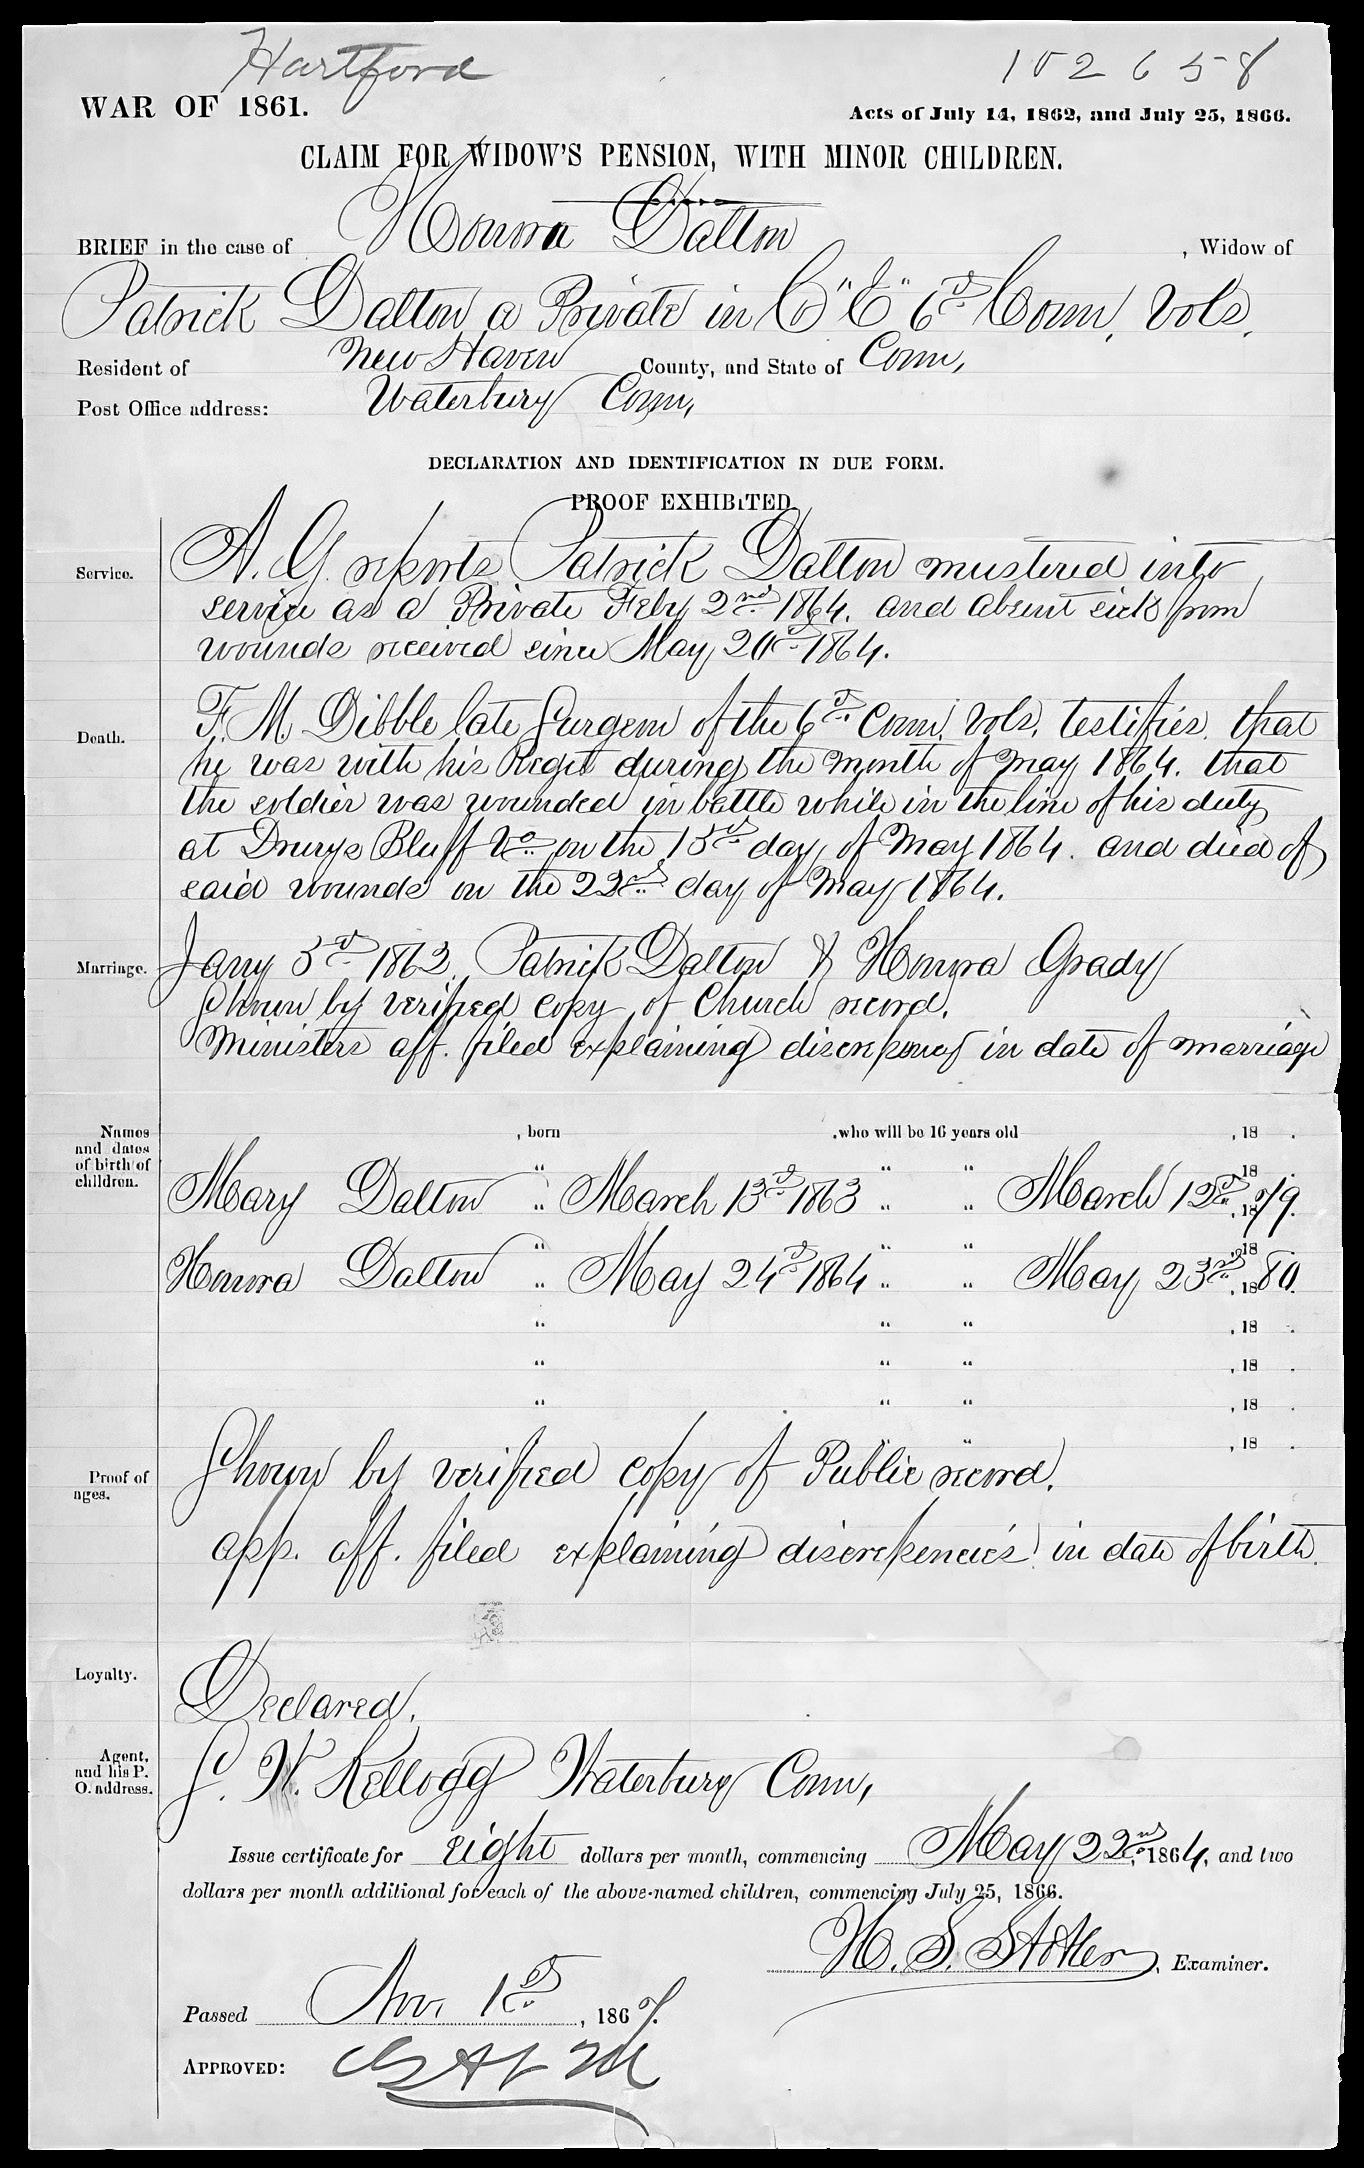 Hartford
102658
WAR OF 1861.
Acts of July 14, 1862, and July 25, 1866.
CLAIM FOR WIDOW'S PENSION, WITH MINOR CHILDREN.
BRIEF in the case of Honora Dalton, Widow of
Patrick Dalton a Private in Co "E" 6th Conn. Vols.
Resident of New Haven County, and State of Conn,
Post Office address: Waterbury Conn,
DECLARATION AND IDENTIFICATION IN DUE FORM.
PROOF EXHIBITED.
Service. A. G. reports Patrick Dalton mustered into
service as a Private Feby 2nd 1864. and absent sick from
wounds received since May 20th 1864.
Death. F. M. Dibble late Surgeon of the 6th Conn. Vols. testifies. that
he was with his Regt during the month of May 1864. that
the soldier was wounded in battle while in the line of his duty
at Drurys Bluff Va. on the 15th day of May 1864. and died of
said wounds on the 22nd day of May 1864.
Marriage. Jany 5th 1863. Patrick Dalton & Honora Grady
Shown by verified copy of Church record.
Ministers aff. filed explaining discrepancy in date of marriage
Names and dates of birth of children. , born , who will be 16 years old , 18 .
" " " 18
Mary Dalton " March 13th 1863 " " March 12th, 1879.
" " " , 18
Honora Dalton " May 24th 1864 " " May 23rd, 1880.
" " " , 18 .
" " " , 18 .
" " " , 18 .
" " , 18 .
Proof of ages. Shown by verified copy of Public record.
app. aff. filed explaining discrepencies in date of birth.
Loyalty. Declared.
Agent, and his P. O. address. S. W. Kellogg Waterbury Conn,
Issue certificate for eight dollars per month, commencing May 22nd, 1864, and two
dollars per month additional for each of the above-named children, commencing July 25, 1866.
H. S. Stotler, Examiner.
Passed Nov. 1st, 1867.
APPROVED: